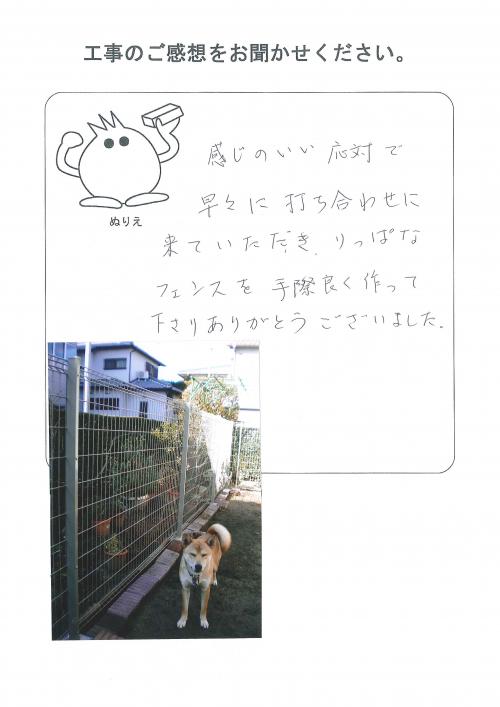 工事のご感想をお聞かせください。
ぬりえ
感じのいい応対で
早々に打ち合わせに
来ていただき、りっぱな
フェンスを手際良く作って
下さりありがとうございました。